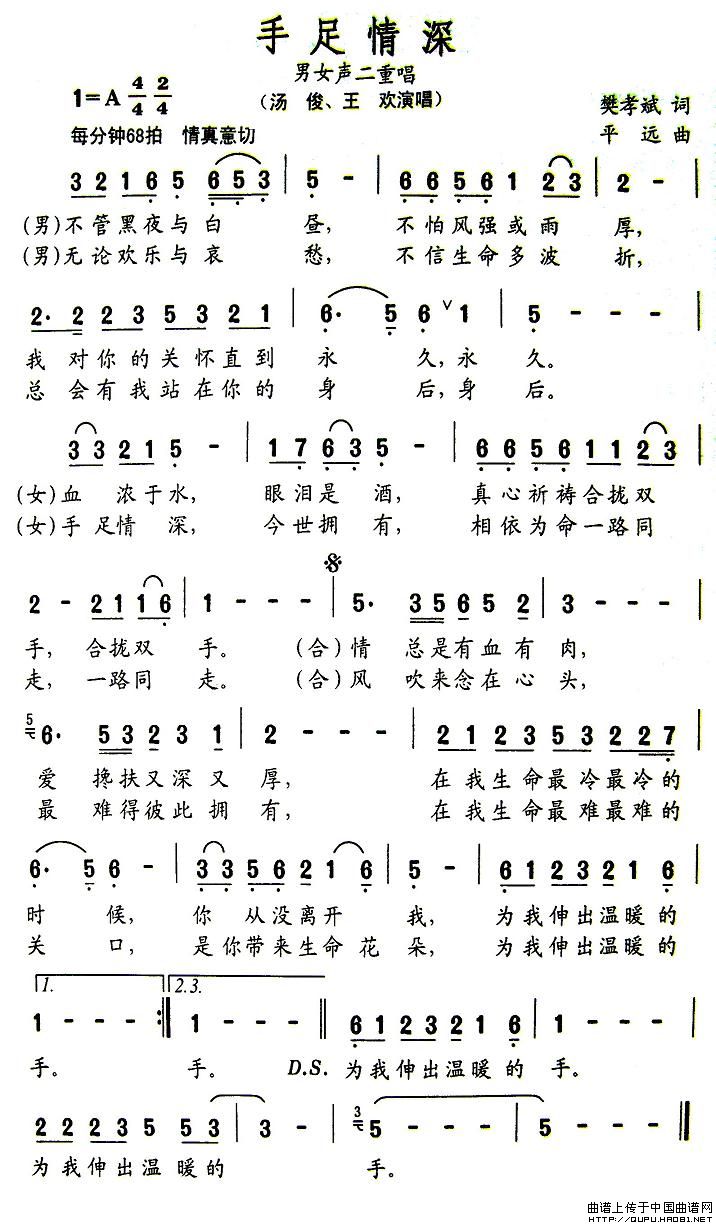 手足情深
男女声二重唱
1=A 4/4 2/4
(汤 俊、王 欢演唱)
樊孝斌 词
每分钟68拍 情真意切
平 远 曲
3 2 1 6 5 6 5 3 | 5 - | 6 6 5 6 1 2 3 | 2 - |
(男)不管黑夜与白 昼, 不怕风强或雨 厚,
(男)无论欢乐与哀 愁, 不信生命多波 折,
2· 2 2 3 5 3 2 1 | 6· 5 6 ∨ 1 | 5 - - - |
我 对你的关怀直到 永 久,永 久。
总 会有我站在你的 身 后,身 后。
3 3 2 1 5 - | 1 7 6 3 5 - | 6 6 5 6 1 1 2 3 |
(女)血 浓于水, 眼泪是 酒, 真心祈祷合拢双
(女)手足情 深, 今世拥 有, 相依为命一路同
𝄋
2 - 2 1 1 6 | 1 - - - | 5· 3 5 6 5 2 | 3 - - - |
手, 合拢双 手。 (合)情 总是有血有 肉,
走, 一路同 走。 (合)风 吹来念在心 头,
5 6· 5 3 2 3 1 | 2 - - - | 2 1 2 3 5 3 2 2 7 |
爱 搀扶又深又 厚, 在我生命最冷最冷的
最 难得彼此拥 有, 在我生命最难最难的
6· 5 6 - | 3 3 5 6 2 1 6 | 5 - - - | 6 1 2 3 2 1 6 |
时 候, 你 从没离开 我, 为我伸出温暖的
关 口, 是你带来生命花 朵, 为我伸出温暖的
1. 2.3.
1 - - - :‖ 1 - - - ‖ 6 1 2 3 2 1 6 | 1 - - - |
手。 手。 D.S. 为我伸出温暖的 手。
2 2 2 3 5 5 3 | 3 - | 3 5 - - - | 5 - - - ‖
为我伸出温 暖的 手。
曲谱上传于中国曲谱网
HTTP://QUPU.HAO81.NET